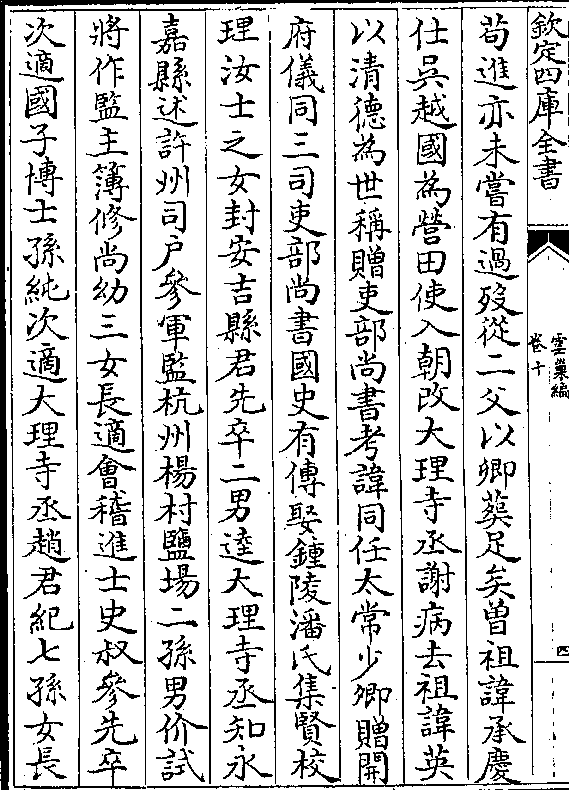 欽定四庫全書
雲巢編
卷十
四
苟進亦未嘗有過殁從二父以卿葬足矣曾祖諱承慶
仕吳越國為營田使入朝改大理寺丞謝病去祖諱英
以清德為世稱贈吏部尚書考諱同任太常少卿贈開
府儀同三司吏部尚書國史有傳娶鍾陵潘氏集賢校
理汝士之女封安吉縣君先卒二男逵大理寺丞知永
嘉縣述許州司户參軍監杭州楊村鹽場二孫男价試
將作監主簿修尚幼三女長適會稽進士史叔參先卒
次適國子博士孫純次適大理寺丞趙君紀七孫女長